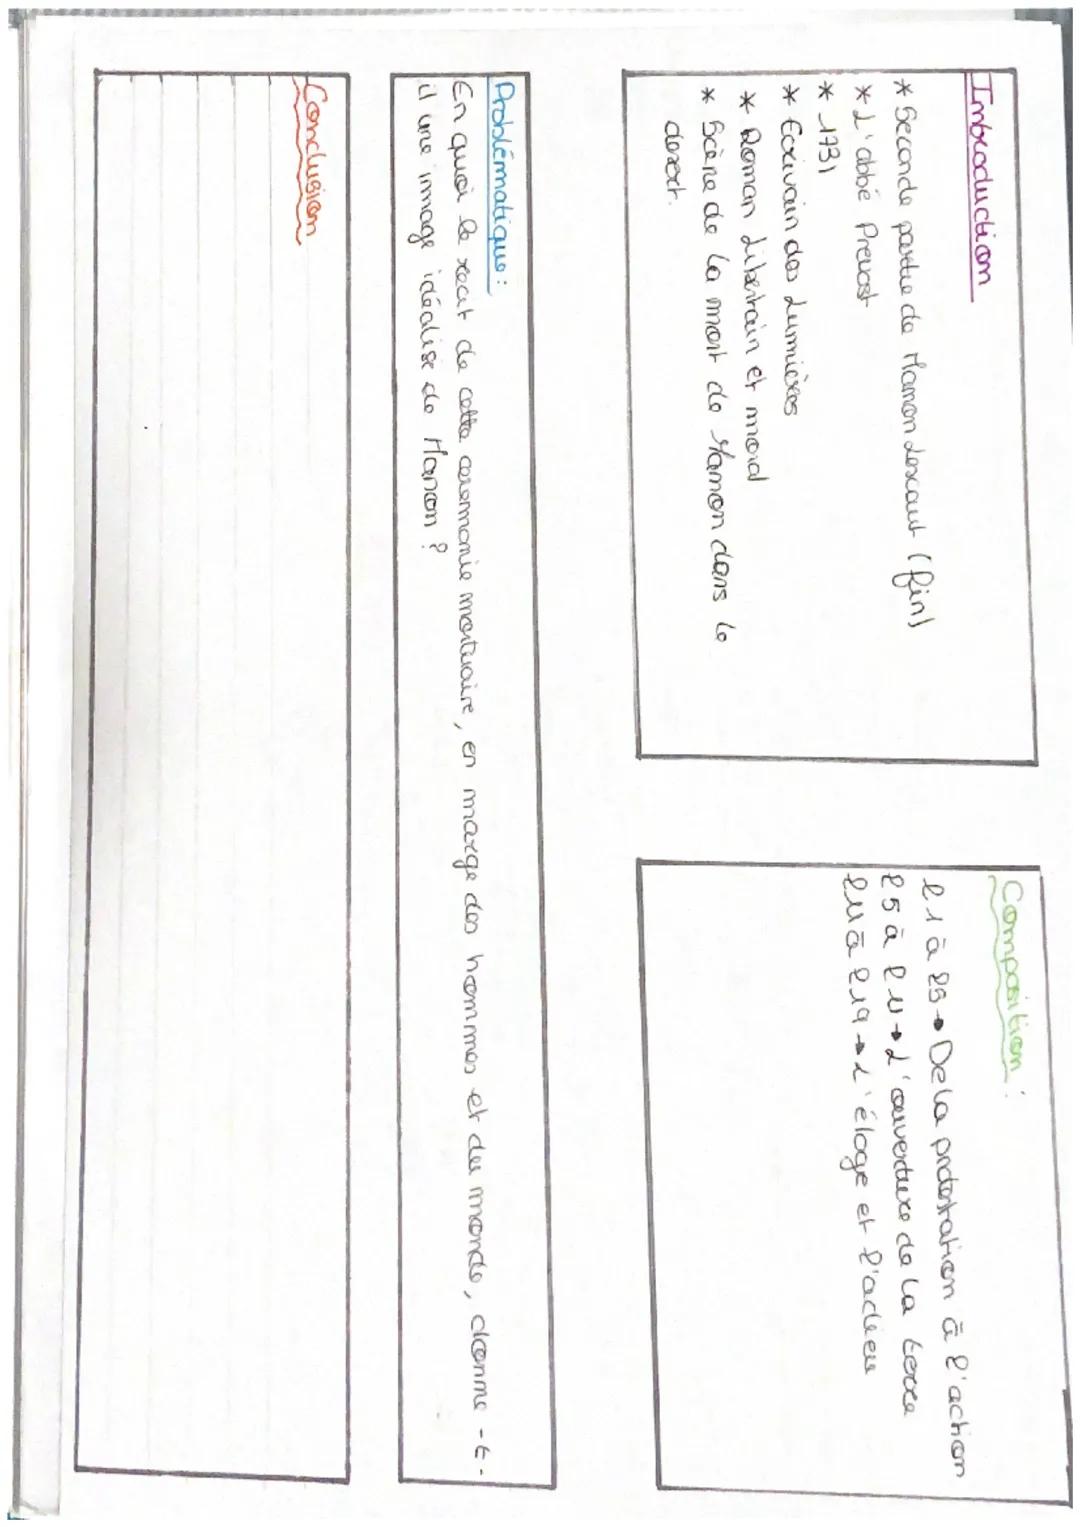 Introduction
* Seconde partie de Manon Lescaut (fin)
* L'abbé Prevost
* 1731
* Ecrivain des Lumières
* Roman Libertain et moral
* Scène de la mort de Manon dans le
desert.
Composition :
l1 à l5 → De la prostration à l'action
l5 à l11 → L'ouverture de la terre
l11 à l19 → L'éloge et l'adieu
Problématique :
En quoi le recit de cette ceremonie mortuaire, en marge des hommes et du monde, donne -t-
il une image idéalise de Manon ?
Conclusion